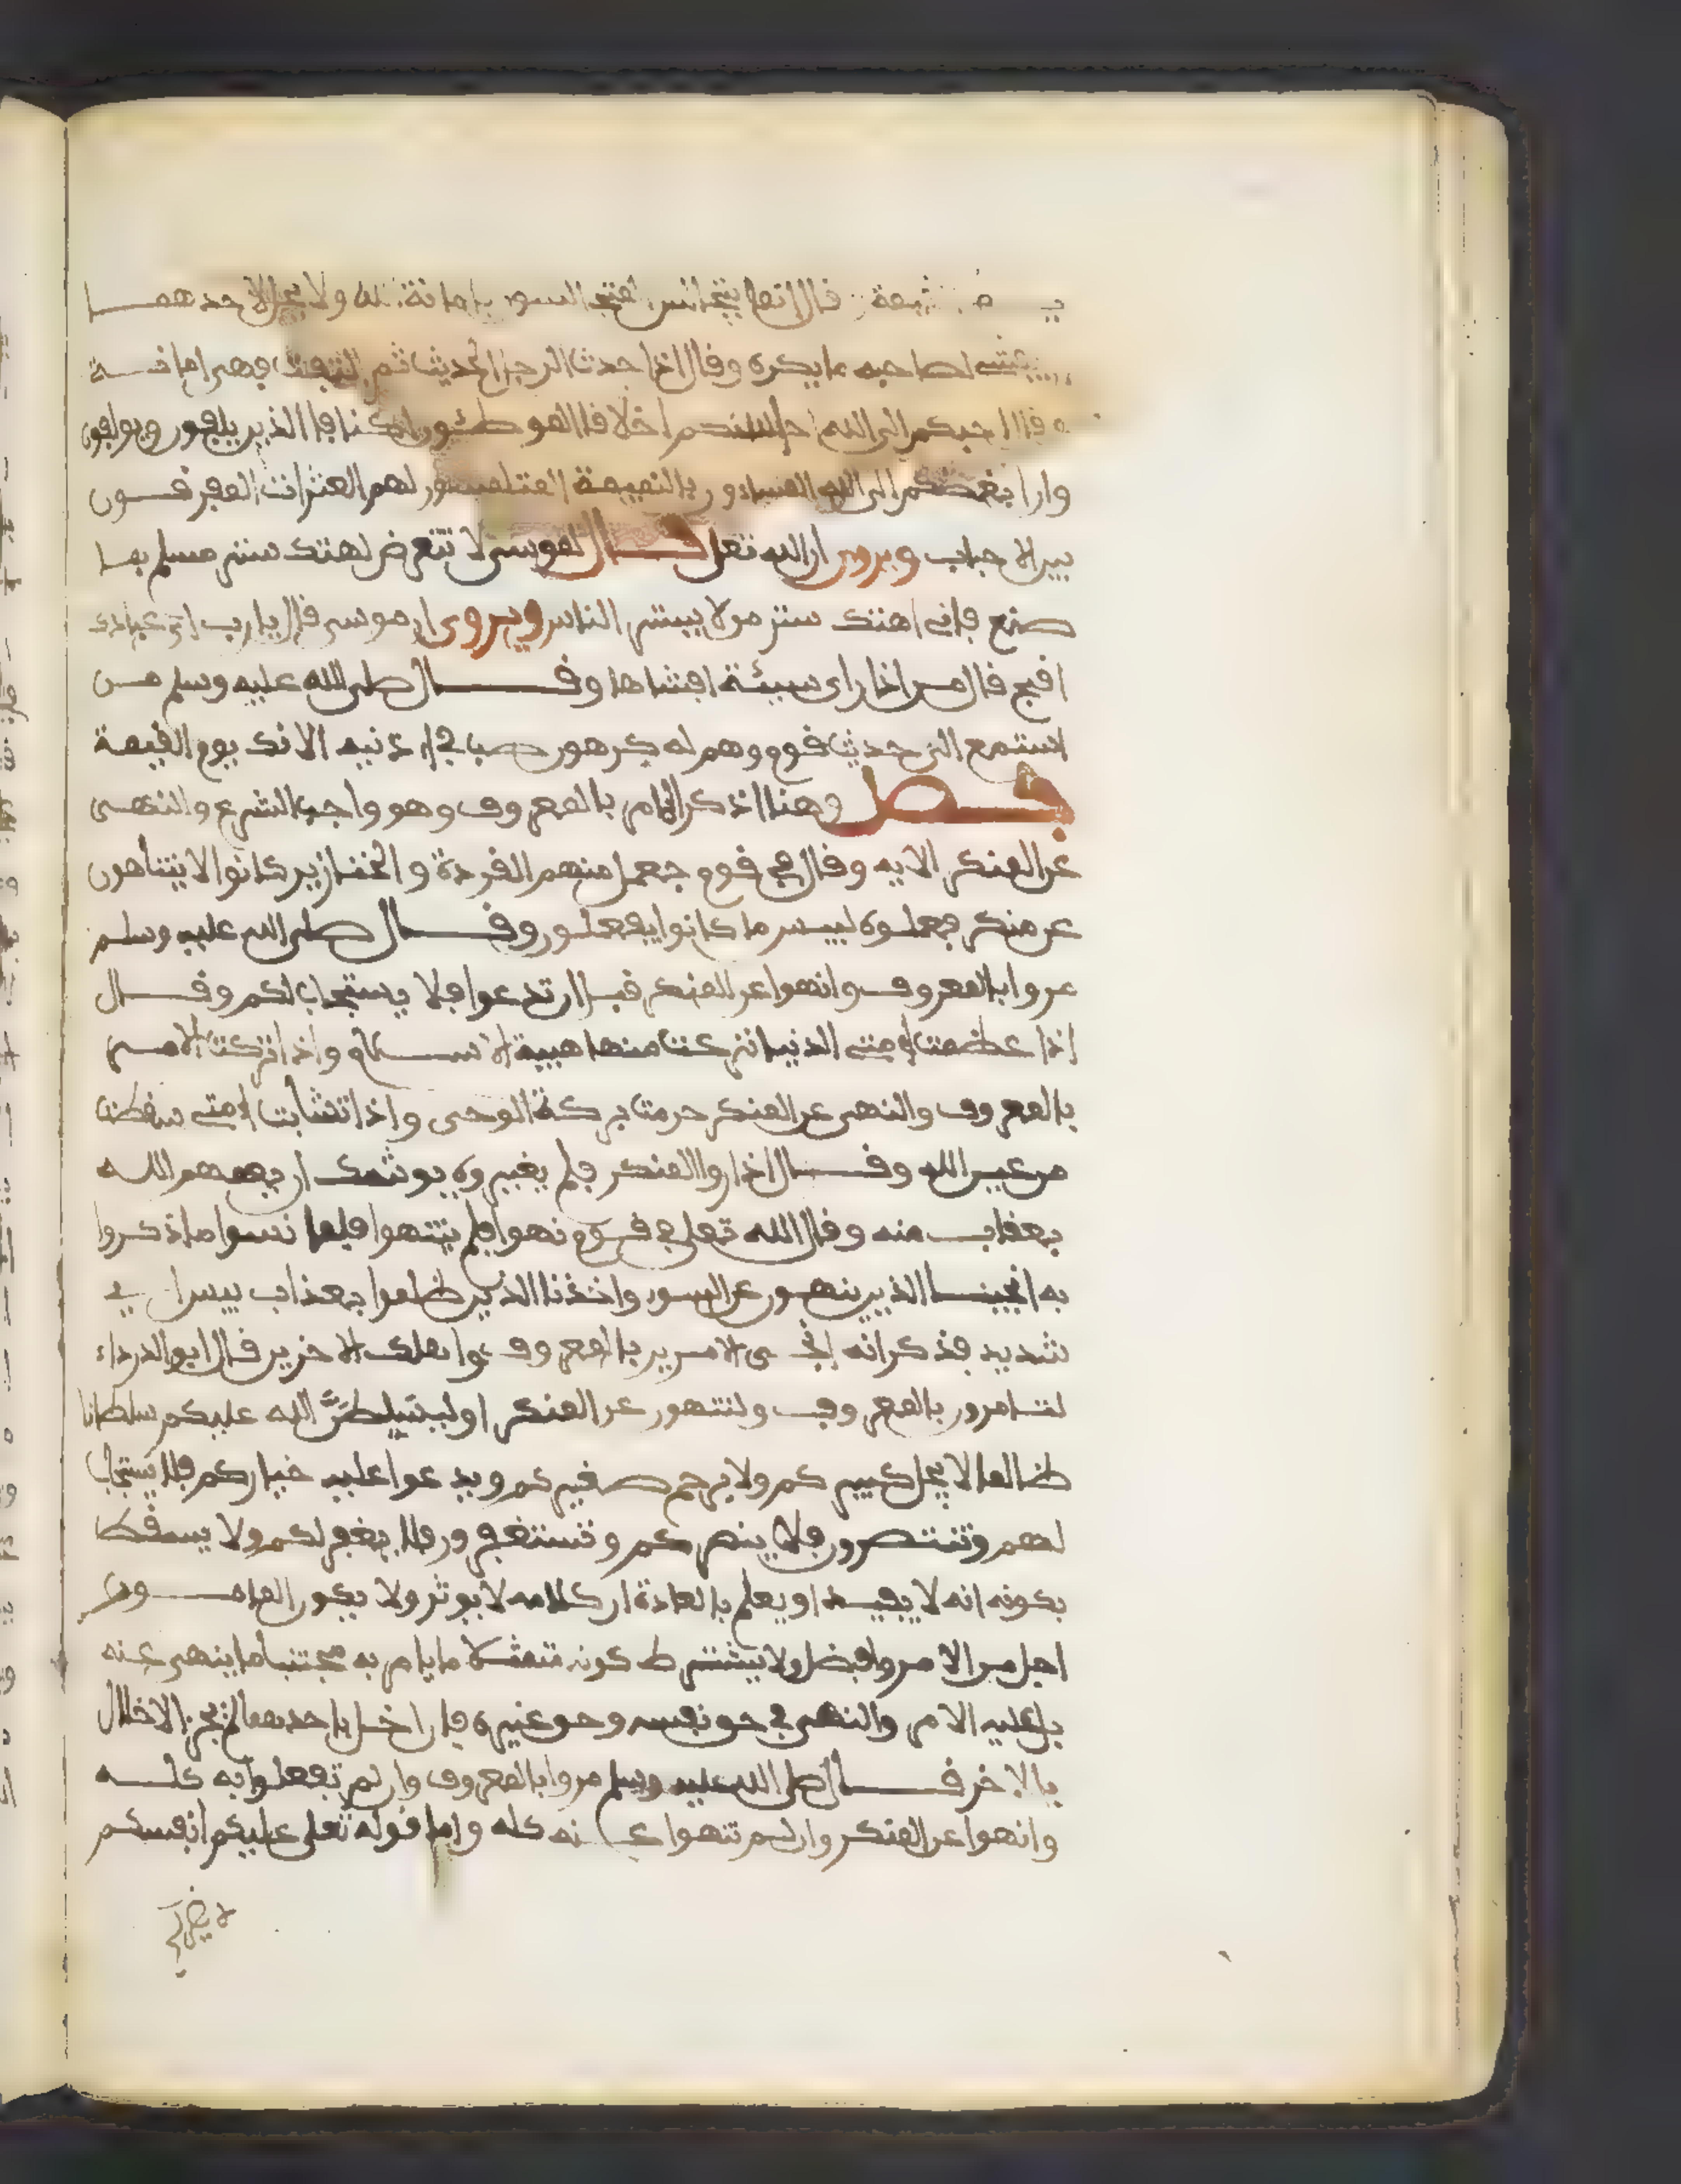 قال انما يتجالس المتجالسون بامانة الله ولا يحل لاحدهما
يفشي لصاحبه ما يكره وقال اذا حدث الرجل الحديث ثم التفت فهي امانة
قال احبكم الى الله احاسنكم اخلاقا الموطئون اكنافا الذين يالفون ويولفون
وان ابغضكم الى الله المشاءون بالنميمة الملتمسون لهم العثرات المفرقون
بين الاحباب ويروى ان الله تعلى قال لموسى لا تتعرض لهتك ستر مسلم بما
صنع فاني اهتك ستر من لا يستر الناس ويروى ان موسى قال يا رب اي عبادك
اقبح قال من اذا راى سيئة افشاها وقال صلى الله عليه وسلم من
استمع الى حديث قوم وهم له كرهون صب في اذنيه الانك يوم القيمة
فصل وهنا اذكر الامر بالمعروف وهو واجب الشرع والنهى
عن المنكر الايه وقال في قوم جعل منهم القردة والخنازير كانوا لا يتناهون
عن منكر فعلوه لبيس ما كانوا يفعلون وقال صلى الله عليه وسلم
مروا بالمعروف وانهوا عن المنكر قبل ان تدعوا فلا يستجاب لكم وقال
اذا عظمت امتي الدنيا نزعت منها هيبة الاسلام واذا تركت الامر
بالمعروف والنهى عن المنكر حرمت بركة الوحى واذا تشابت امتي سقطت
من عين الله وقال اذا روا المنكر فلم يغيروه يوشك ان يعمهم الله
بعقاب منه وقال الله تعلى في قوم نهوا فلم ينتهوا فلما نسوا ما ذكروا
به انجينا الذين ينهون عن السوء واخذنا الذين ظلموا بعذاب بيس اي
شديد فذكر انه انجى الامرين بالمعروف واهلك الاخرين قال ابو الدرداء
لتامرون بالمعروف ولتنهون عن المنكر او ليسلطن الله عليكم سلطانا
ظالما لا يجل كبيركم ولا يرحم صغيركم ويدعوا عليه خياركم فلا يستجاب
لهم وتنتصرون فلا ينصركم وتستغفرون فلا يغفر لكم ولا يسقط
بكونه انه لا يفيد او يعلم بالعادة ان كلامه لا يوثر ولا يكون المامور
اجل من الامر وافضل ولا يشترط كونه متمثلا ما يامر به مجتنبا ما ينهى عنه
بل عليه الامر والنهى في حق نفسه وحق غيره فان اخل باحدهما لم يجز الاخلال
بالاخر قال صلى الله عليه وسلم مروا بالمعروف وان لم تفعلوا به كله
وانهوا عن المنكر وان لم تنهوا عنه كله واما قوله تعلى عليكم انفسكم
لا يضركم